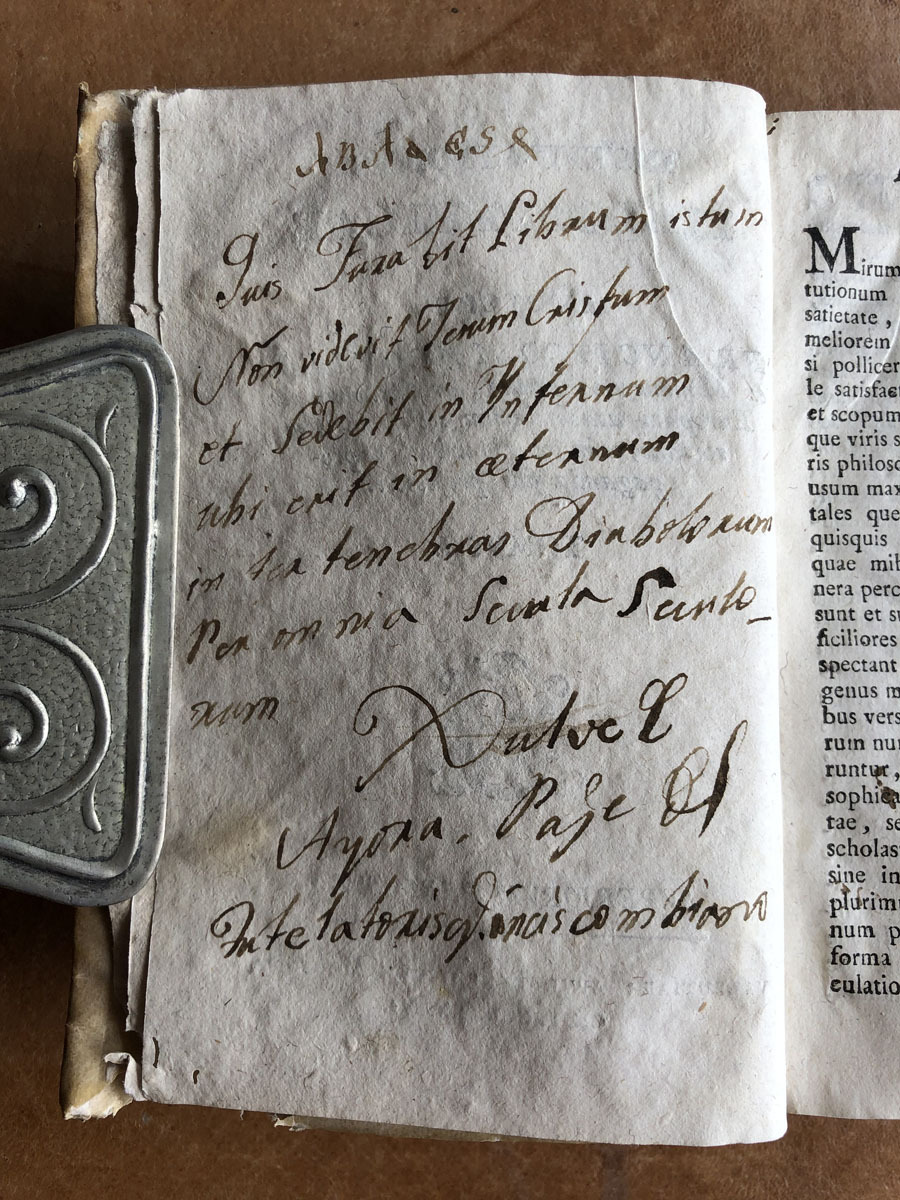 Quis Furabit Librum istum
Non videvit Jesum Cristum
et Sedebit in Ynfernum
ubi erit in æternum
inter tenebras Diabolorum
Per omnia Secula Seculo_
rum
Ayora, Paje
Mirum
tutionum
satietate,
meliorem
si pollicer
le satisfact
et scopum
que viris s
ris philoso
usum max
tales que
quisquis
quae mih
nera perc
sunt et su
ficiliores
spectant
genus m
bus vers
rum nun
runtur,
sophica
tae, se
scholas
sine in
plurimu
num p
forma
culatio